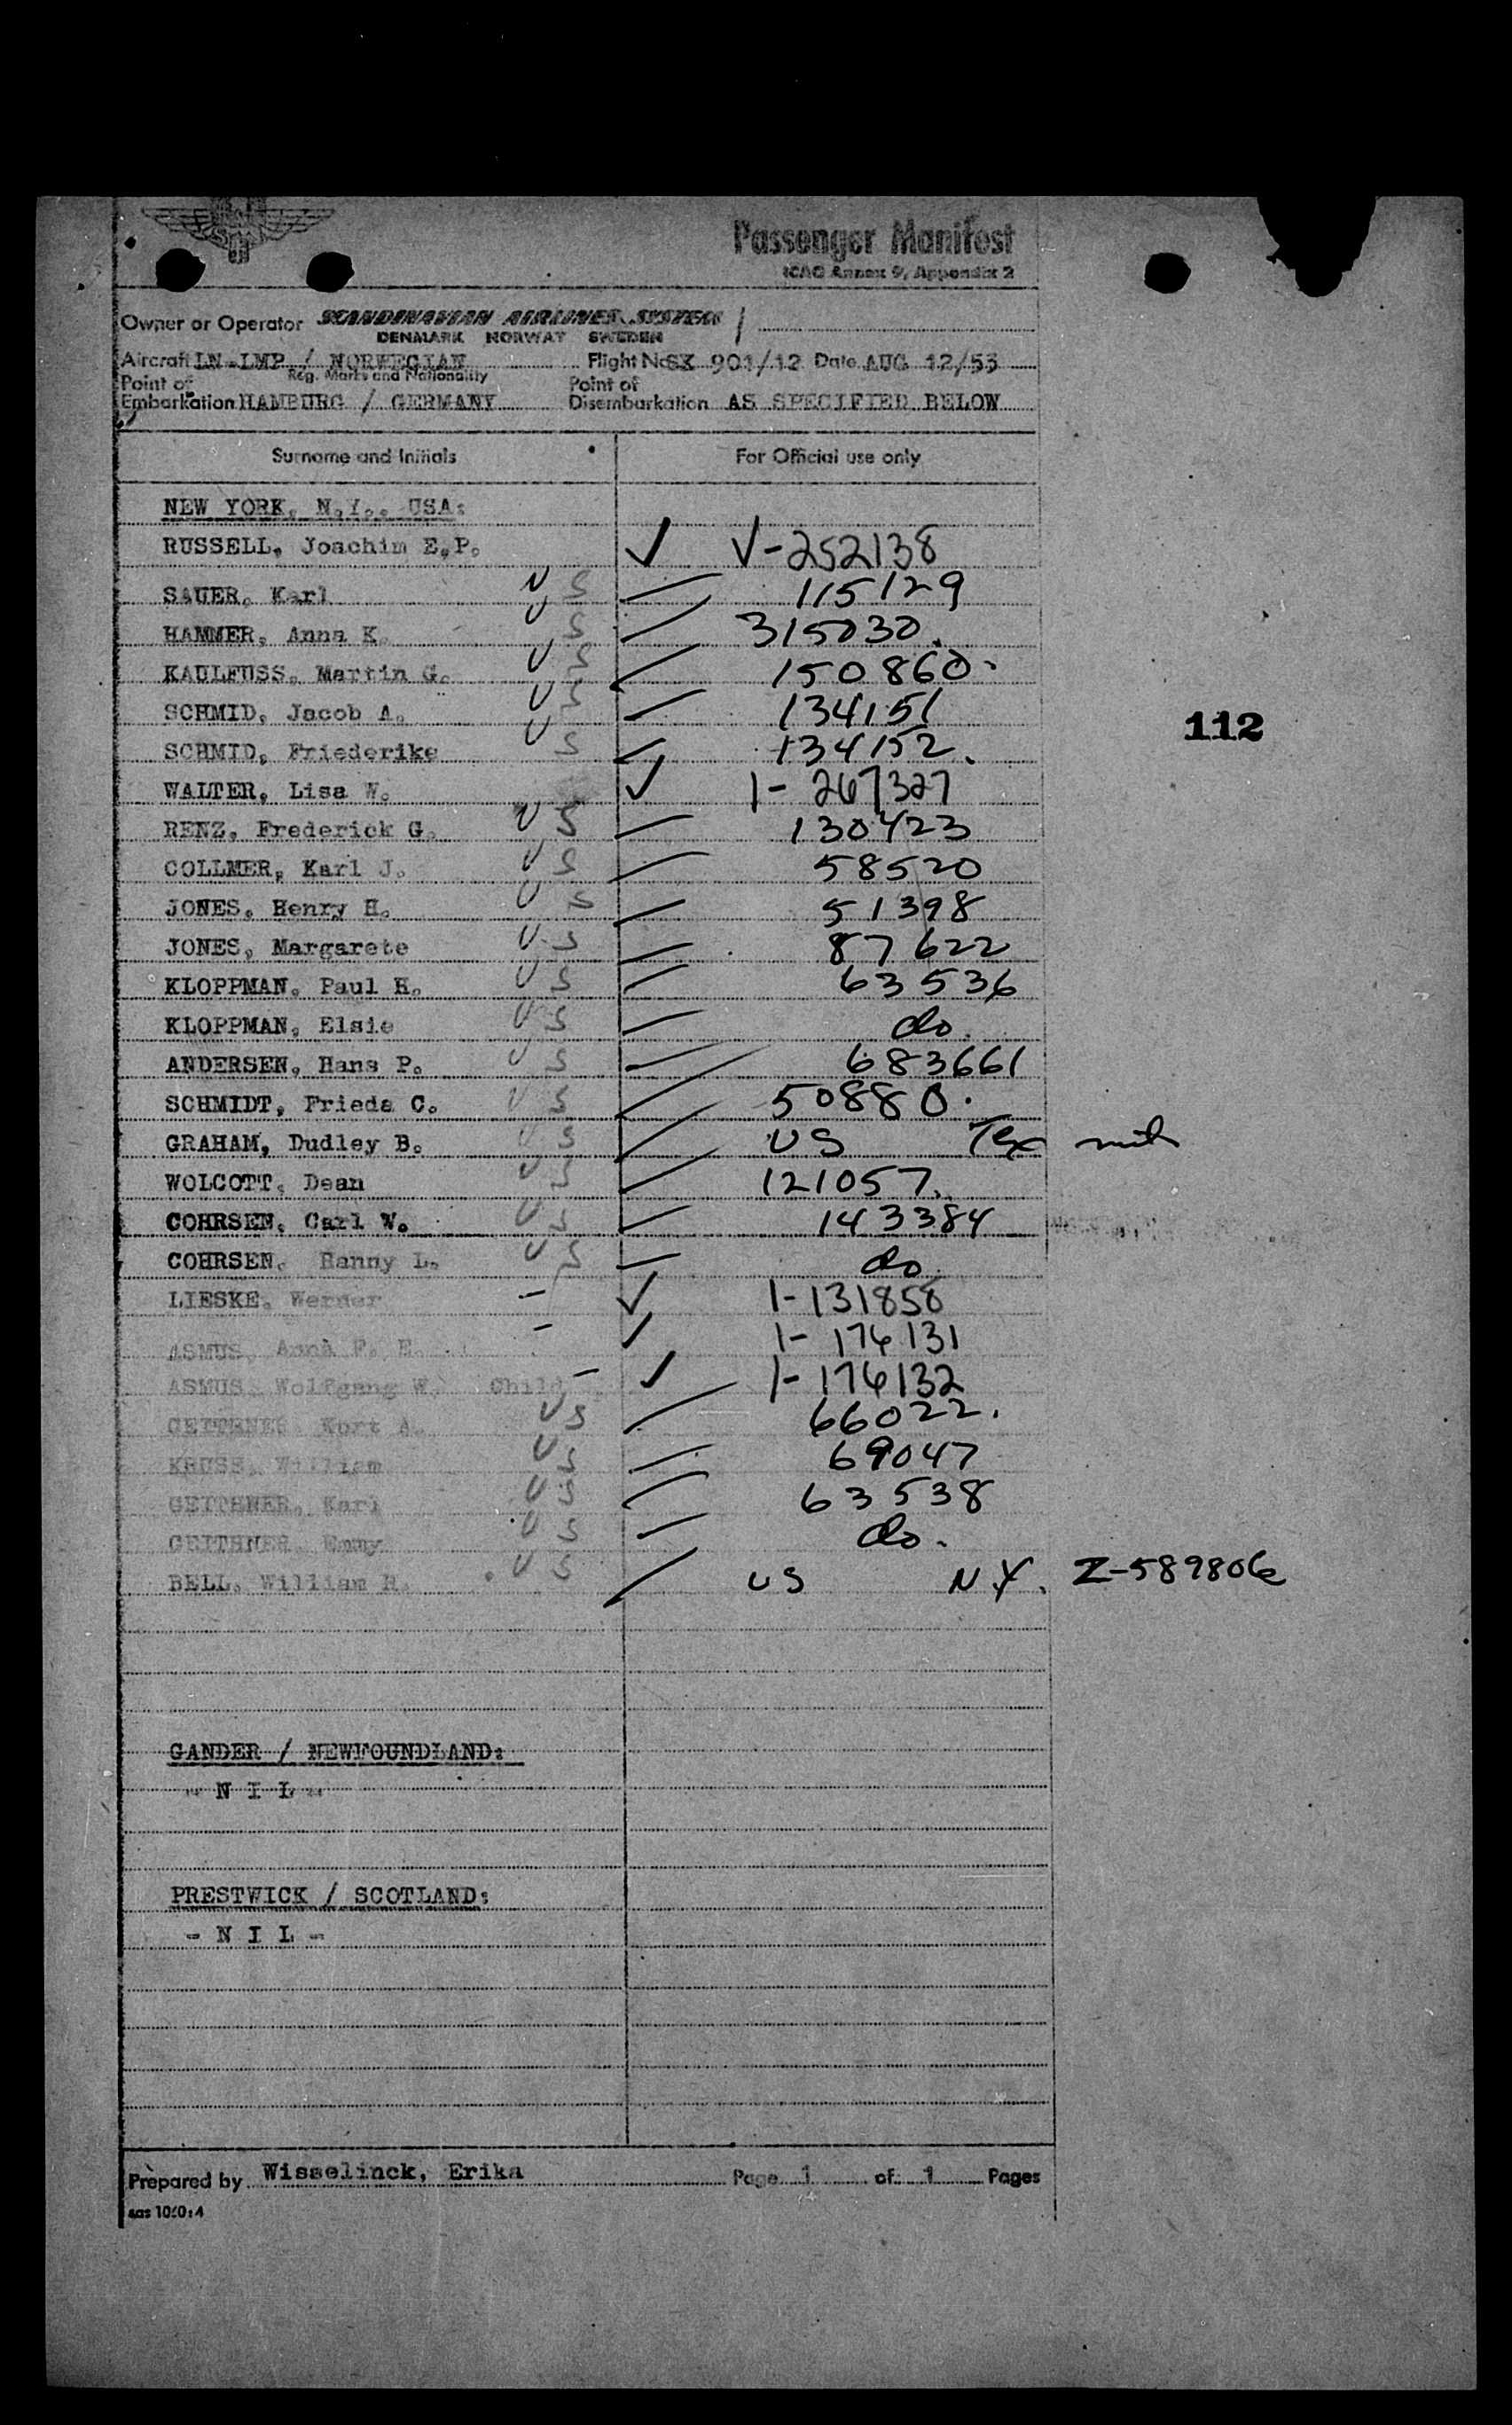 Passenger Manifest
ICAO Annex 9, Appendix 2
Owner or Operator SCANDINAVIAN AIRLINES SYSTEM /
DENMARK NORWAY SWEDEN
Aircraft LN-LMP / NORWEGIAN Flight No SK 901/12 Date AUG 12/53
Reg. Marks and Nationality
Point of Embarkation HAMBURG / GERMANY Point of Disembarkation AS SPECIFIED BELOW
Surname and Initials For Official use only
NEW YORK, N.Y., USA:
RUSSELL, Joachim E.P. ✓ V-252138
SAUER, Karl US 115129
HAMMER, Anna K. US 315030.
KAULFUSS, Martin G. US 150860.
SCHMID, Jacob A. US 134151
112
SCHMID, Friederike US 134152.
WALTER, Lisa W. ✓ 1-267327
RENZ, Frederick G. US 130423
COLLMER, Karl J. US 58520
JONES, Henry H. US 51398
JONES, Margarete US 87622
KLOPPMAN, Paul H. US 63536
KLOPPMAN, Elsie US do.
ANDERSEN, Hans P. US 683661
SCHMIDT, Frieda C. US 50880.
GRAHAM, Dudley B. US US Tex
WOLCOTT, Dean US 121057.
COHRSEN, Carl W. US 143384
COHRSEN, Hanny L. US do.
LIESKE, Werner - ✓ 1-131858
ASMUS, Anna F. E. - ✓ 1-176131
ASMUS, Wolfgang W. Child - ✓ 1-176132
GEITHNER, Kurt A. US 66022.
KRUSS, William US 69047
GEITHNER, Karl US 63538
GEITHNER, Emmy US do.
BELL, William R. US US N.Y. Z-589806
GANDER / NEWFOUNDLAND:
- N I L -
PRESTWICK / SCOTLAND:
- N I L -
Prepared by Wisselinck, Erika Page 1 of 1 Pages